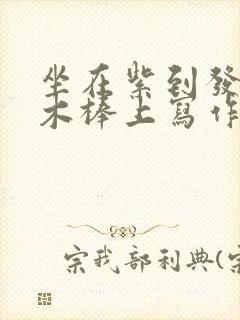 坐在紫到發
木棒上寫作
宗我部利典(宗